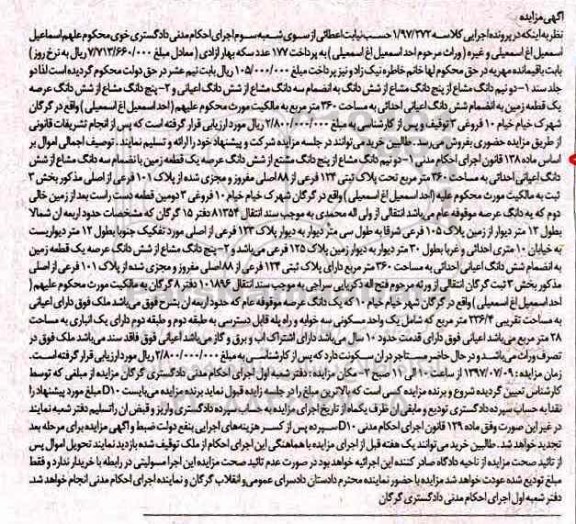 آگهی مزایده
نظر به اینکه در پرونده اجرایی کلاسه ۱/۹۷/۲۷۲ حسب نیابت اعطائی از سوی شعبه سوم اجرای احکام مدنی دادگستری خوی محکوم علهم اسماعیل
اسمعیل اغ اسمعیلی و غیره (وراث مرحوم احد اسمعیل اغ اسمعیلی) به پرداخت ۱۷۷ عدد سکه بهار ازادی (معادل مبلغ ۷/۷۱۳/۶۶۰/۰۰۰ ریال به نرخ روز)
بابت باقیمانده مهریه در حق محکوم لها خانم خاطره نیک زاد و نیز پرداخت مبلغ ۱۰۵/۰۰۰/۰۰۰ ریال بابت نیم عشر در حق دولت محکوم گردیده است لذا دو
جلد سند ۱- دو نیم دانگ مشاع از پنج دانگ مشاع از شش دانگ به انضمام سه دانگ مشاع از شش دانگ اعیانی و ۲- پنج دانگ مشاع از شش دانگ عرصه
یک قطعه زمین به انضمام شش دانگ اعیانی احداثی به مساحت ۳۶۰ متر مربع به مالکیت مورث محکوم علیهم (احد اسمعیل اغ اسمعیلی) واقع در گرگان
شهرک خیام خیام ۱۰ فروغی ۳ توقیف و پس از کارشناسی به مبلغ ۲/۸۰۰/۰۰۰/۰۰۰ ریال مورد ارزیابی قرار گرفته است که پس از انجام تشریفات قانونی
از طریق مزایده حضوری بفروش می‌رسد. طالبین خرید می‌توانند در جلسه مزایده شرکت و پیشنهاد خود را ارائه و تسلیم نمایند. توصیف اجمالی اموال بر
اساس ماده ۱۳۸ قانون اجرای احکام مدنی ۱- دو نیم دانگ مشاع از پنج دانگ مشتع از شش دانگ عرصه یک قطعه زمین با نضمام سه دانگ مشاع از شش
دانگ اعیانی احداثی به مساحت ۳۶۰ متر مربع تحت پلاک ثبتی ۱۲۴ فرعی از ۸۸ اصلی مفروز و مجزی شده از پلاک ۱۰۱ فرعی از اصلی مذکور بخش ۳
ثبت به مالکیت مورث محکوم علیه (احد اسمعیل اغ اسمعیلی) واقع در گرگان شهرک خیام خیام ۱۰ فروغی ۳ دومین قطعه دست راست بعد از زمین خالی
دوم که یه دانگ عرصه موقوفه عام می‌باشد انتقالی از ولی اله محمدی به موجب سند انتقال ۸۱۳۵۴ دفتر ۱۵ گرگان که مشخصات حدود اربعه ان شمالا
بطول ۱۲ متر دیوار از زمین پلاک ۱۰۵ فرعی شرقا به طول سی متر دیوار به دیوار پلاک ۱۲۳ فرعی از اصلی مورد تفکیک جنوبا بطول ۱۲ متر دیواریست
به خیابان ۱۰ متری احداثی و غربا بطول ۳۰ متر دیوار به دیوار زمین پلاک ۱۲۵ فرعی می‌باشد و ۲- پنج دانگ مشاع از شش دانگ عرصه یک قطعه زمین
به انضمام شش دانگ اعیانی احداثی به مساحت ۳۶۰ متر مربع دارای پلاک ثبتی ۱۲۴ فرعی از ۸۸ اصلی مفروز و مجزی شده از پلاک ۱۰۱ فرعی از اصلی
مذکور بخش ۳ ثبت گرگان انتقالی از ورثه مرحوم فتح اله ذکریایی سراجی به موجب سند انتقال ۱۰۱۸۹۶ دفتر ۸ گرگان به مالکیت مورث محکوم علیهم (
احد اسمعیل اغ اسمعیلی) واقع در گرگان شهر خیام خیام ۱۰ که یک دانگ عرصه موقوفه عام که حدود اربعه ان بشرح فوق می‌باشد ملک فوق دارای اعیانی
به مساحت تقریبی ۳۳۶/۴ متر مربع که شامل یک واحد مسکونی سه خوابه و راه پله قابل دسترسی به طبقه دوم و طبقه دوم دارای یک انباری به مساحت
۲۸ متر مربع می‌باشد اعیانی فوق دارای قدمت حدود ۱۰ سال می‌باشد دارای اشتراک اب و برق و گاز می‌باشد اعیانی فوق فاقد سند می‌باشد ملک فوق در
تصرف وراث می‌باشد و در حال حاضر مستاجر در ان سکونت دارد که پس از کارشناسی به مبلغ ۲/۸۰۰/۰۰۰/۰۰۰ ریال مورد ارزیابی قرار گرفته است.
زمان مزایده: ۱۳۹۷/۰۷/۰۹ از ساعت ۱۰ الی ۱۱ صبح ۲- مکان مزایده: دفتر شعبه اول اجرای احکام مدنی دادگستری گرگان مزایده از مبلغی که توسط
کارشناس تعیین گردیده شروع و برنده مزایده کسی است که بالاترین مبلغ را در جلسه زایده قبول نماید برنده مزایده می‌بایست D۱۰ مبلغ مورد پیشنهاد را
نقدا به حساب سپرده دادگستری تودیع و مابقی ان ظرف یکماه از تاریخ اجرای مزایده به حساب سپرده دادگستری واریز و قبض ان را تسلیم دفتر شعبه نمایند
در غیر این صورت وفق ماده ۱۲۹ قانون اجرای احکام مدنی D۱۰ سپرده پس از کسر هزینه‌های اجرایی بنفع دولت ضبط و آگهی مزایده برای مرحله بعد
تجدید خواهد شد. طالبین خرید می‌توانند یک هفته قبل از اجرای مزایده با هماهنگی این اجرای احکام از ملک توقیف شده بازدید نمایند تحویل اموال پس
از تائید صحت مزایده از ناحیه دادگاه صادر کننده این اجرائیه خواهد بود در صورت عدم تائید صحت مزایده این اجرا مسولیتی در رابطه با خریدار ندارد و فقط
مبلغ تودیع شده عودت خواهد شد مزایده با حضور نماینده محترم دادستان دادسرای عمومی و انقلاب گرگان و نماینده اجرای احکام مدنی انجام خواهد شد.
دفتر شعبه اول اجرای احکام مدنی دادگستری گرگان